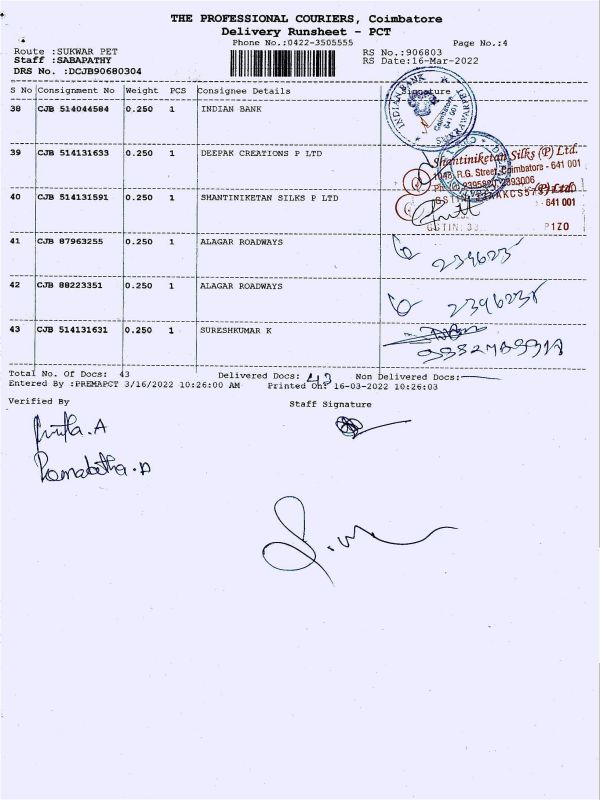 THE PROFESSIONAL COURIERS, Coimbatore
Delivery Runsheet - PCT
Phone No.:0422-3505555
Page No.:4
Route :SUKWAR PET
RS No.:906803
Staff :SABAPATHY
RS Date:16-Mar-2022
DRS No. :DCJB90680304
S No Consignment No Weight PCS Consignee Details Signature
38 CJB 514044584 0.250 1 INDIAN BANK
INDIAN BANK
Coimbatore
641 001
39 CJB 514131633 0.250 1 DEEPAK CREATIONS P LTD
Shantiniketan Silks (P) Ltd.
R.G. Street, Coimbatore - 641 001
40 CJB 514131591 0.250 1 SHANTINIKETAN SILKS P LTD
(P) Ltd.
- 641 001
GSTIN: 33
P1Z0
41 CJB 87963255 0.250 1 ALAGAR ROADWAYS
239623
42 CJB 88223351 0.250 1 ALAGAR ROADWAYS
43 CJB 514131631 0.250 1 SURESHKUMAR K
Total No. Of Docs: 43 Delivered Docs: 43 Non Delivered Docs:
Entered By :PREMAPCT 3/16/2022 10:26:00 AM Printed On: 16-03-2022 10:26:03
Verified By
Staff Signature